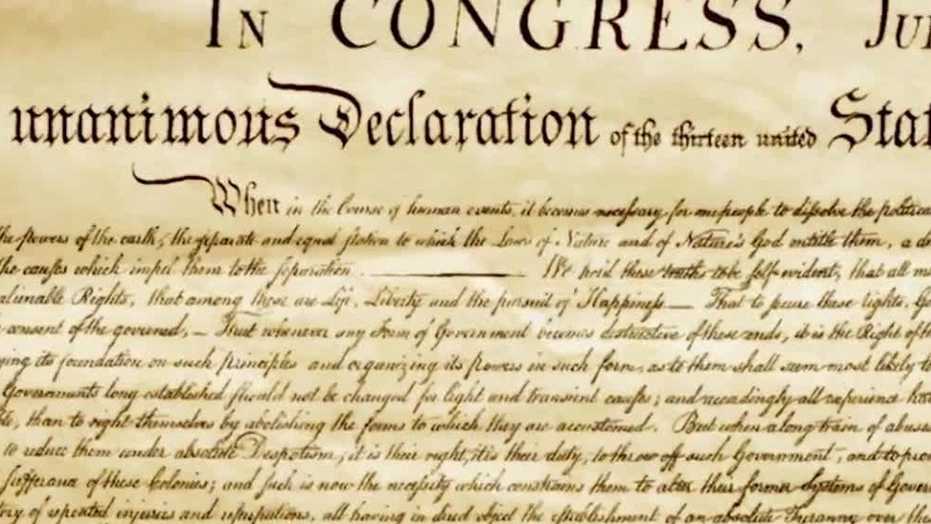 IN CONGRESS, JU
unanimous Declaration of the thirteen united Stat
When in the Course of human events, it becomes necessary for one people to dissolve the political
the powers of the earth, the separate and equal station to which the Laws of Nature and of Nature's God entitle them, a de
the causes which impel them to the separation. —— We hold these truths to be self-evident, that all m
alienable Rights, that among these are Life, Liberty and the pursuit of Happiness.— That to secure these rights, Go
consent of the governed, — That whenever any Form of Government becomes destructive of these ends, it is the Right of th
ying its foundation on such principles and organizing its powers in such form, as to them shall seem most likely to
Governments long established should not be changed for light and transient causes; and accordingly all experience hat
le, than to right themselves by abolishing the forms to which they are accustomed. But when a long train of abuses
to reduce them under absolute Despotism, it is their right, it is their duty, to throw off such Government, and to pro
sufferance of these Colonies; and such is now the necessity which constrains them to alter their former Systems of Govern
ory of repeated injuries and usurpations, all having in direct object the establishment of an absolute Tyranny over the